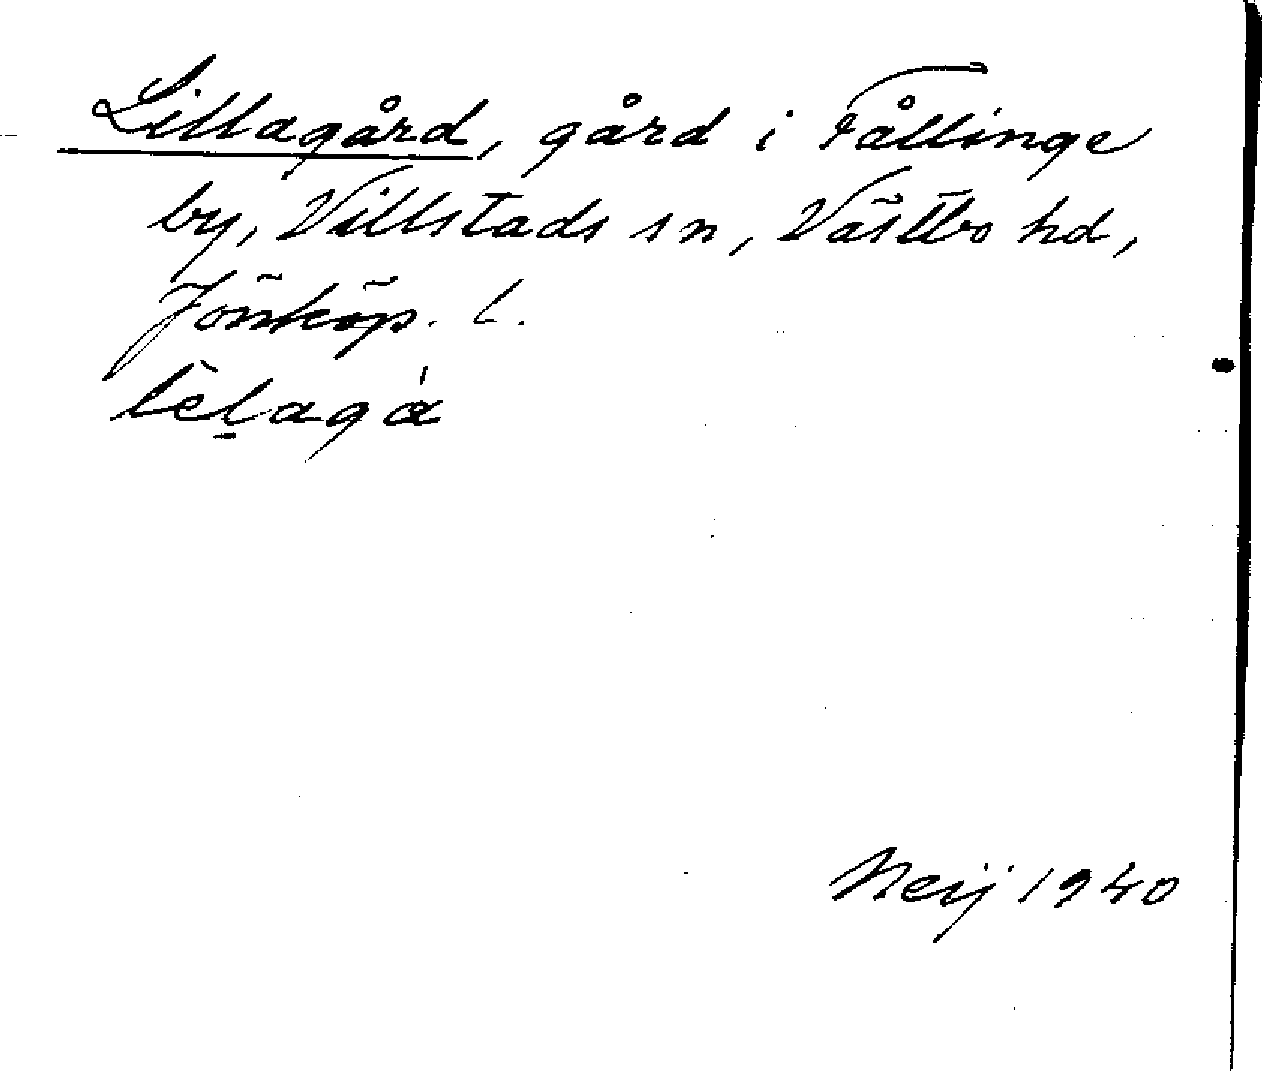 Lillagård, gård i Fållinge
by, Villstads sn, Västbo hd,
Jönköp. l.
lèl̠agá
Neij 1940